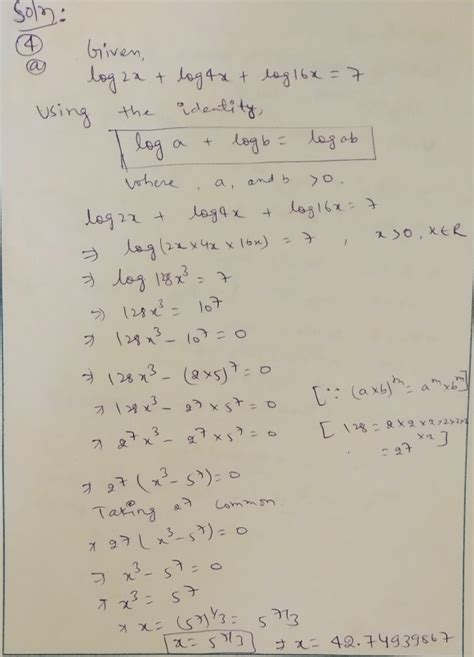 Soln:
④ Given,
ⓐ log2x + log4x + log16x = 7
Using the identity,
log a + log b = log ab
where, a, and b > 0.
log2x + log4x + log16x = 7
⇒ log(2x × 4x × 16x) = 7 , x > 0, x ∈ R
⇒ log 128x³ = 7
⇒ 128x³ = 10⁷
⇒ 128x³ - 10⁷ = 0
⇒ 128x³ - (2×5)⁷ = 0
⇒ 128x³ - 2⁷ × 5⁷ = 0 [∵ (a×b)ᵐ = aᵐ × bᵐ]
⇒ 2⁷x³ - 2⁷ × 5⁷ = 0 [128 = 2 × 2 × 2×2×2×2
×2]
= 2⁷
⇒ 2⁷ (x³ - 5⁷) = 0
Taking 2⁷ common.
⇒ 2⁷ (x³ - 5⁷) = 0
⇒ x³ - 5⁷ = 0
⇒ x³ = 5⁷
⇒ x = (5⁷)^1/3 = 5^7/3
x = 5^7/3 ⇒ x = 42.74939867